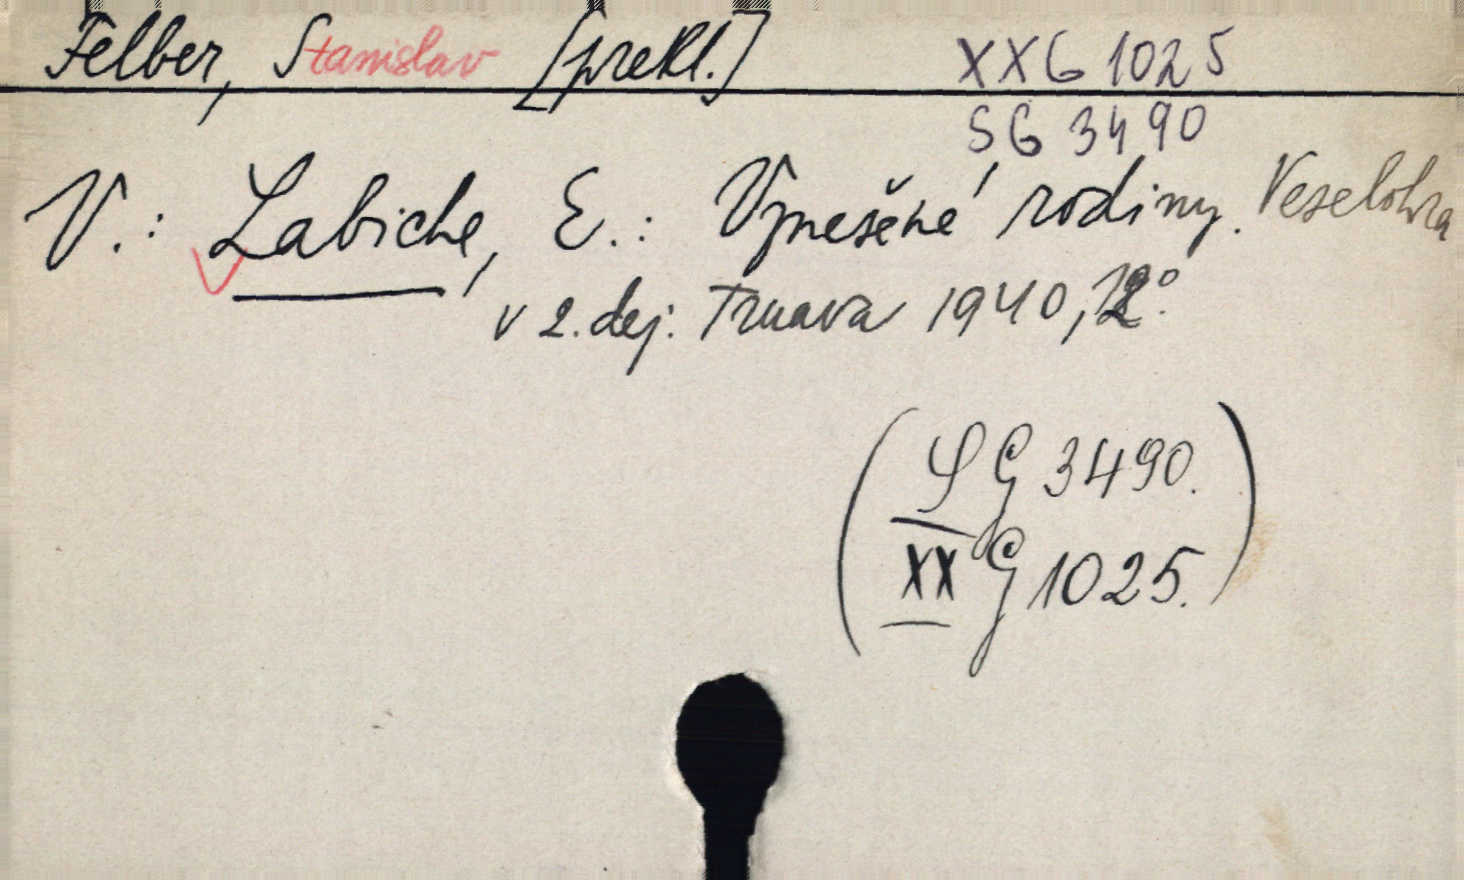 Felber, Stanislav [prekl.] XXG 1025
SG 3490
V.: Labiche, E.: Vznešené rodiny. Veselohra
v 2. dej. Trnava 1940, 12°.
(SG 3490.
XX G 1025.)